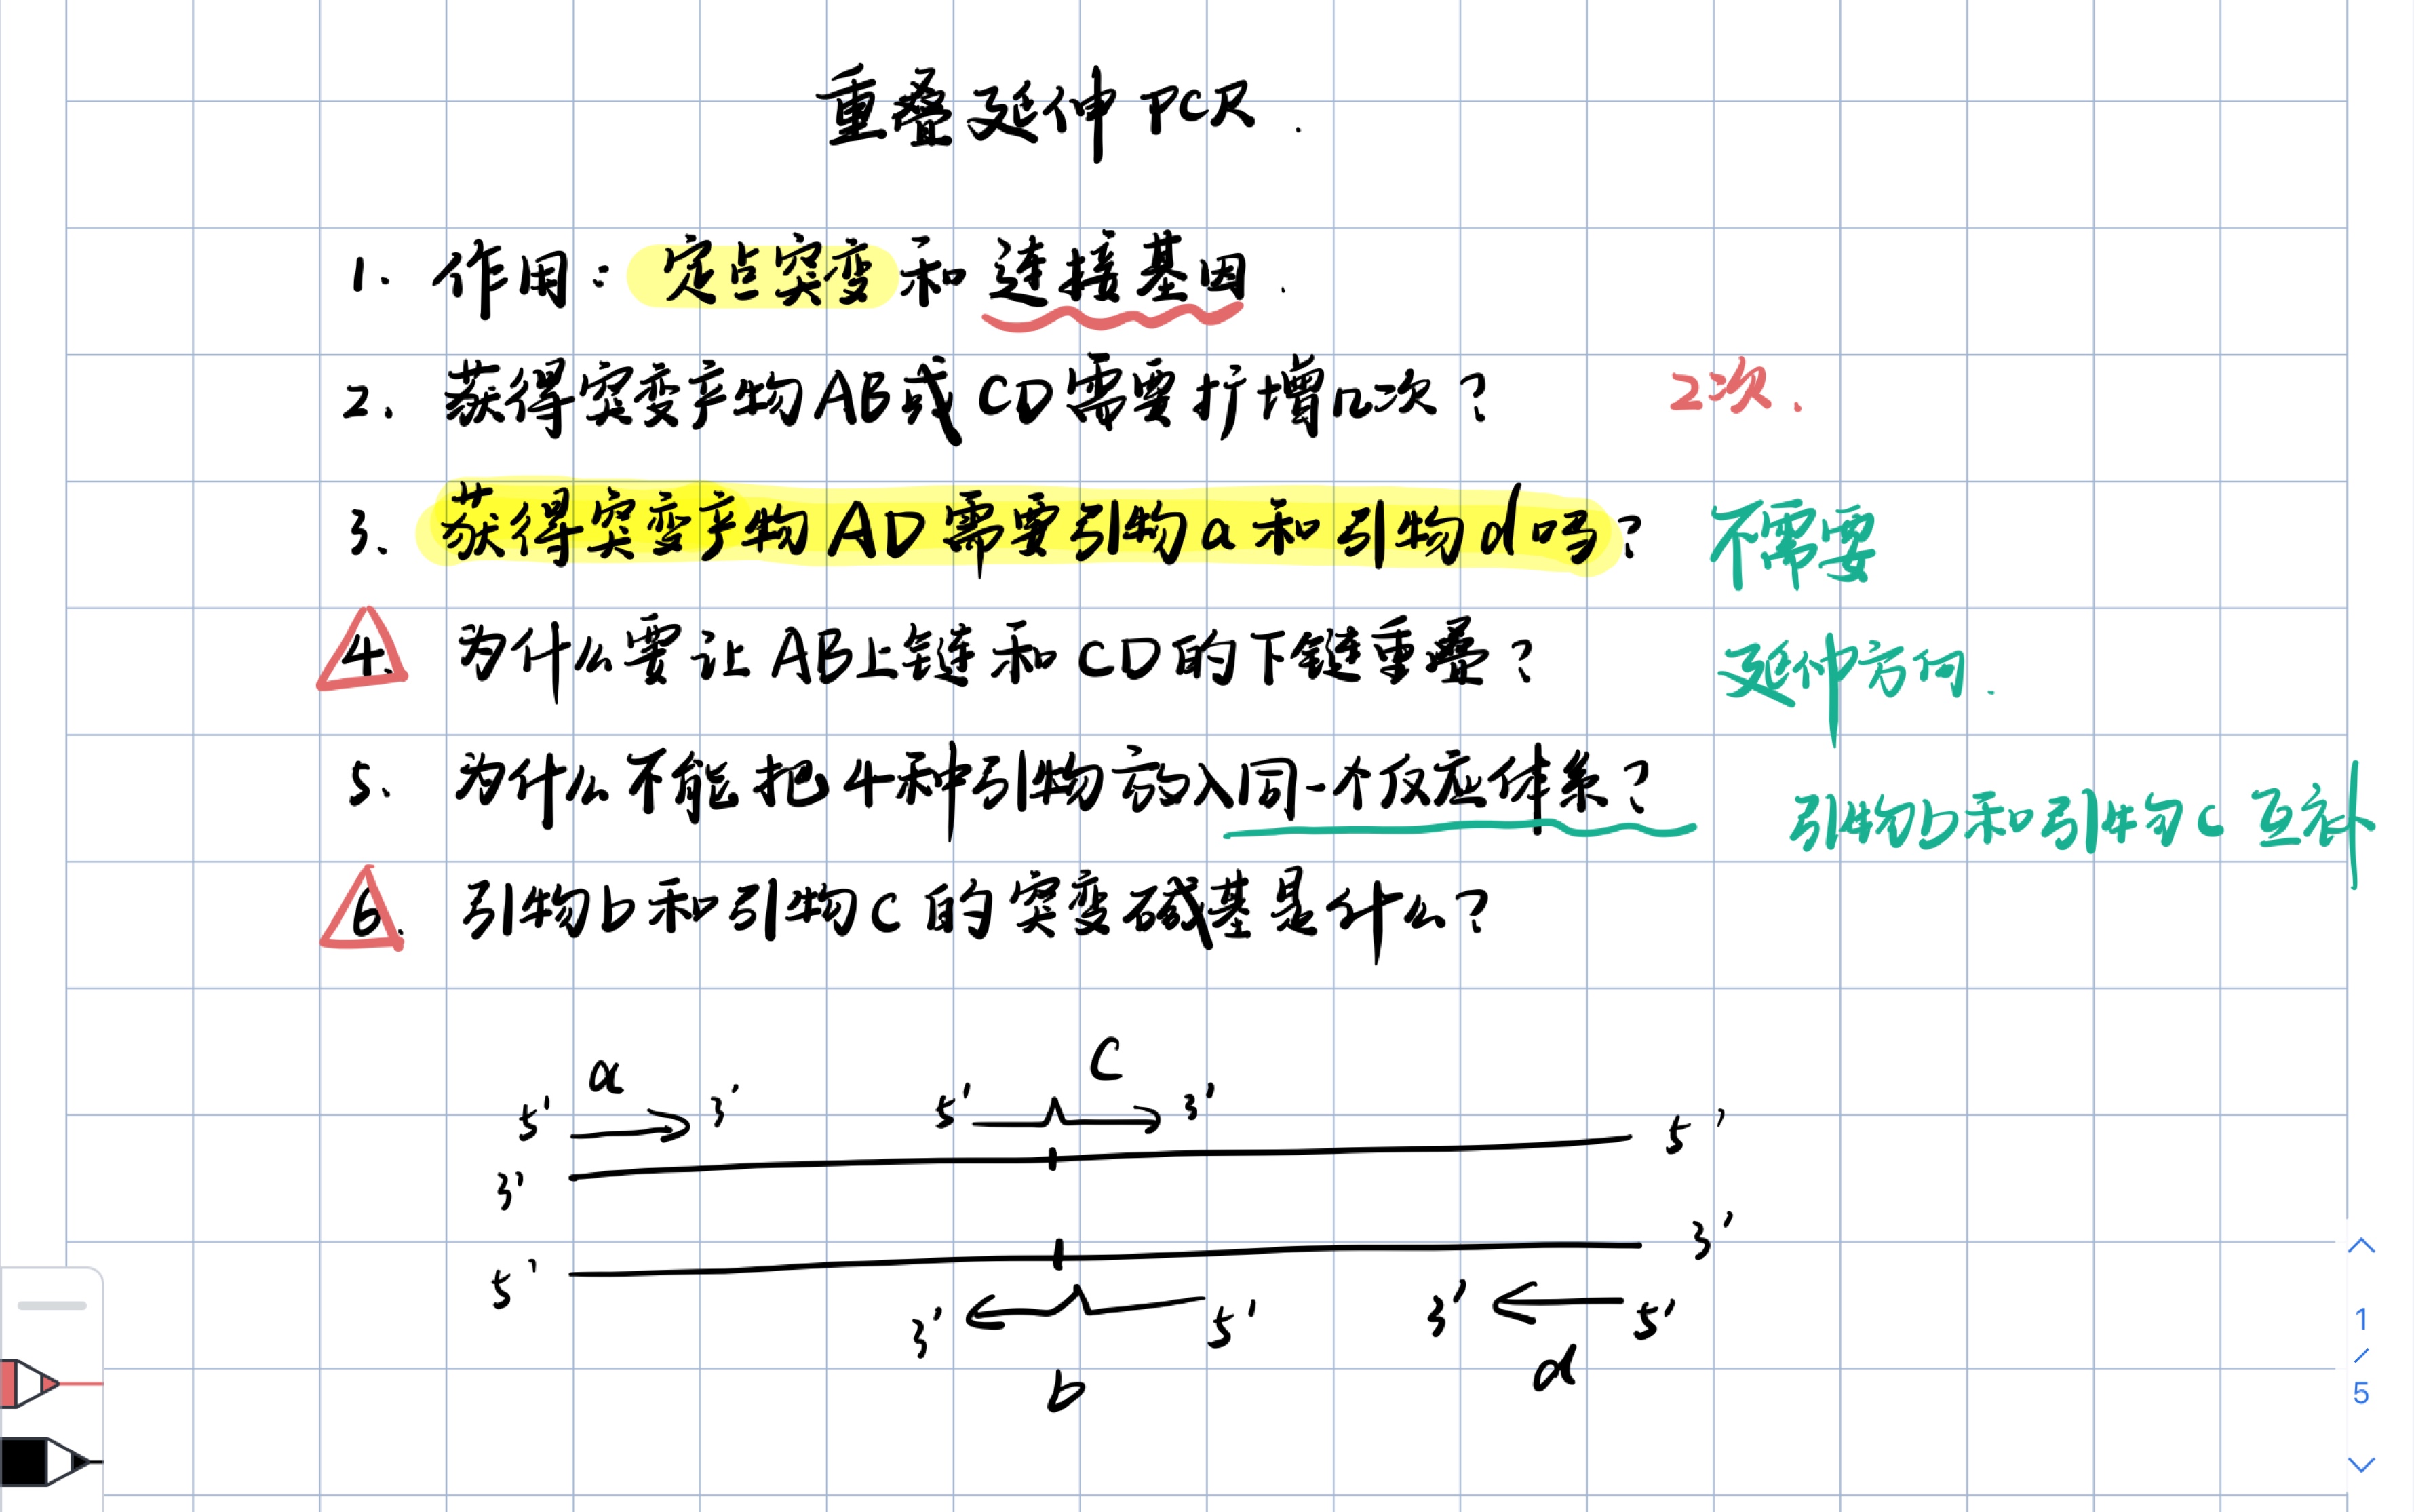 重叠延伸PCR.
1. 作用：定点突变和连接基因.
2、获得突变产物AB或CD需要扩增几次？ 2次.
3、获得突变产物AD需要引物a和引物d吗？ 不需要
4. 为什么要让AB上链和CD的下链重叠？ 延伸方向.
5、为什么不能把4种引物放入同一个反应体系？ 引物b和引物c互补
6. 引物b和引物C的突变碱基是什么？
a C
5' 3' 5' 3' 5'
3'
3'
5'
3' 5' 3' 5'
b d
1
/
5